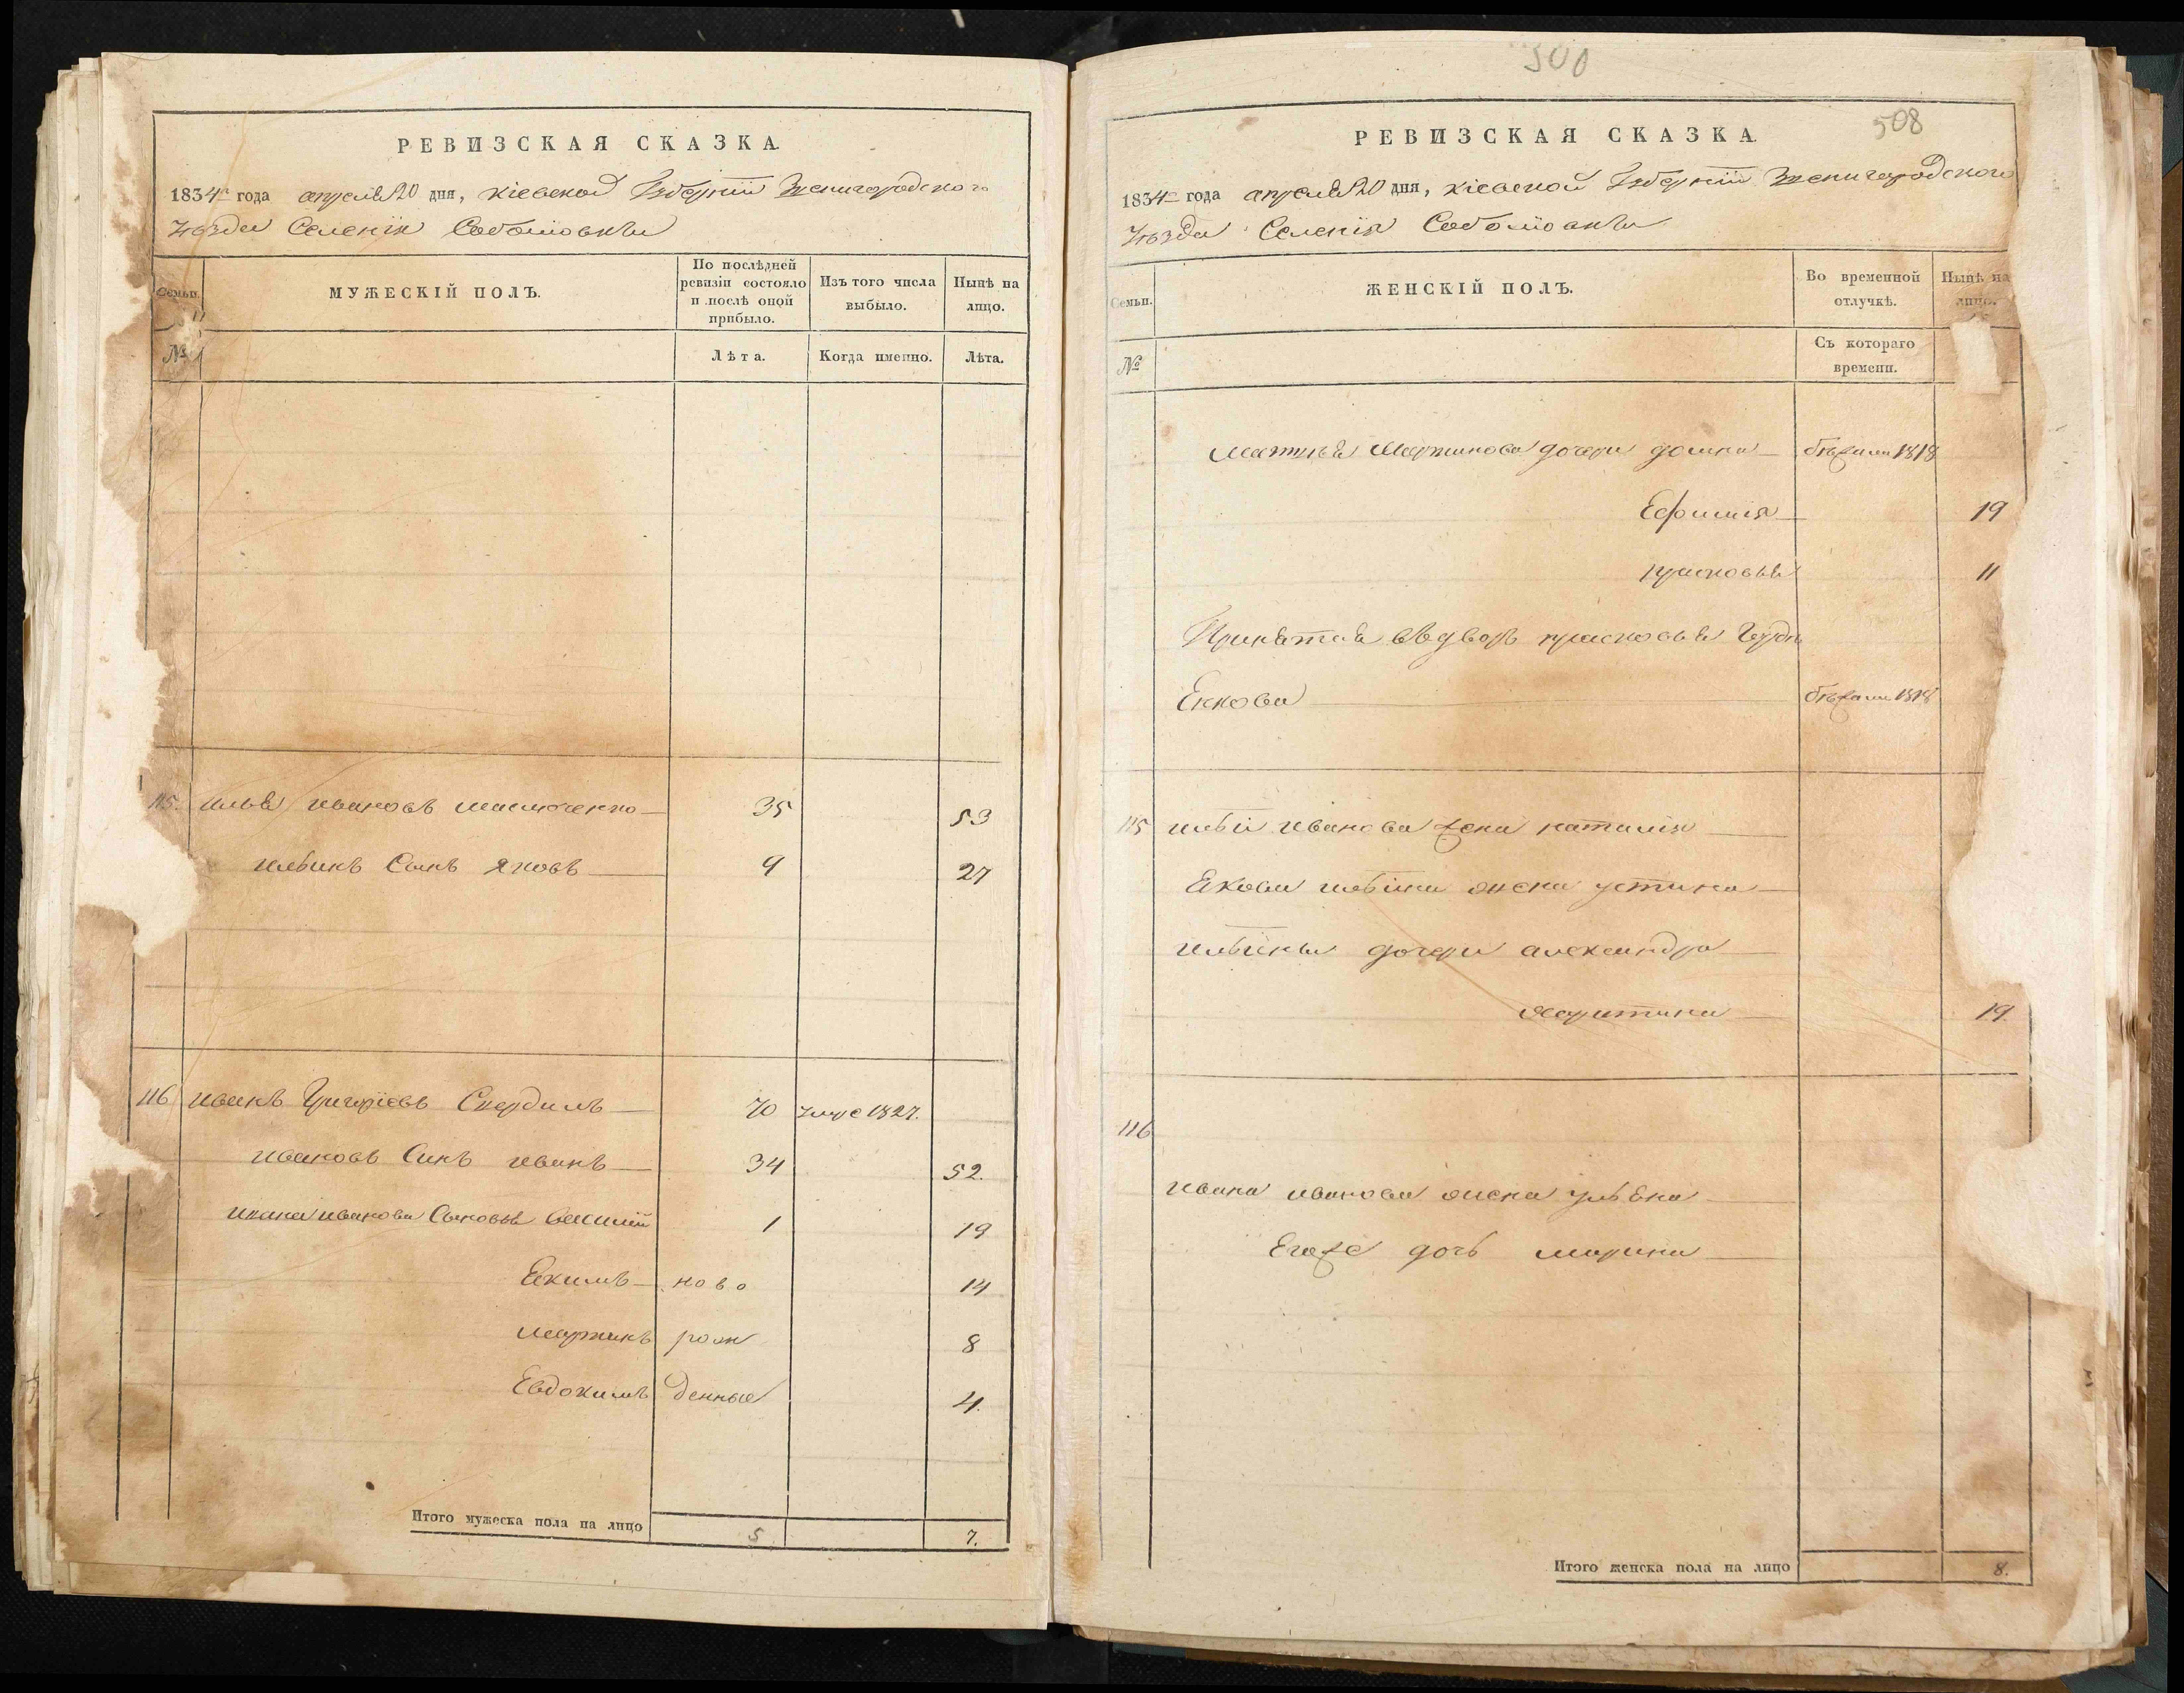 РЕВИЗСКАЯ СКАЗКА.
1834го года апреля 20 дня, Кіевской Губерніи Звенигородского
Уѣзда Селенія Соболювки
Семьи.
МУЖЕСКІЙ ПОЛЪ.
По послѣдней ревизіи состояло и послѣ оной прибыло.
Изъ того числа выбыло.
Нынѣ на лицо.
№
Лѣта.
Когда именно.
Лѣта.
115. Илья Ивановъ 35 53
Ильинъ Сынъ Яковъ 9 27
116 Иванъ Григоріевъ 70 умре 1827.
Ивановъ Синъ Иванъ 34 52.
Ивана Иванова Сыновья Василій 1 19
Екимъ ново 14
Мартинъ рож 8
Евдокимъ денные 4.
Итого мужеска пола на лицо 5 7.
500
508
РЕВИЗСКАЯ СКАЗКА.
1834го года апреля 20 дня, Кіевской Губерніи Звенигородского
Уѣзда Селенія Соболювки
Семьи.
ЖЕНСКІЙ ПОЛЪ.
Во временной отлучкѣ.
Нынѣ на лицо.
№
Съ котораго времени.
Мартинова дочери Домна бѣжали 1818
Ефимия 19
Прасковья 11
Принятая въ дворъ Прасковья
бѣжали 1818
115 Ильи Иванова жена Наталія
Якова Ильина жена Устина
Ильины дочери Александра
Харитина 19.
116
Ивана Иванова жена Ульяна
Егоже дочь Марина
Итого женска пола на лицо 8.